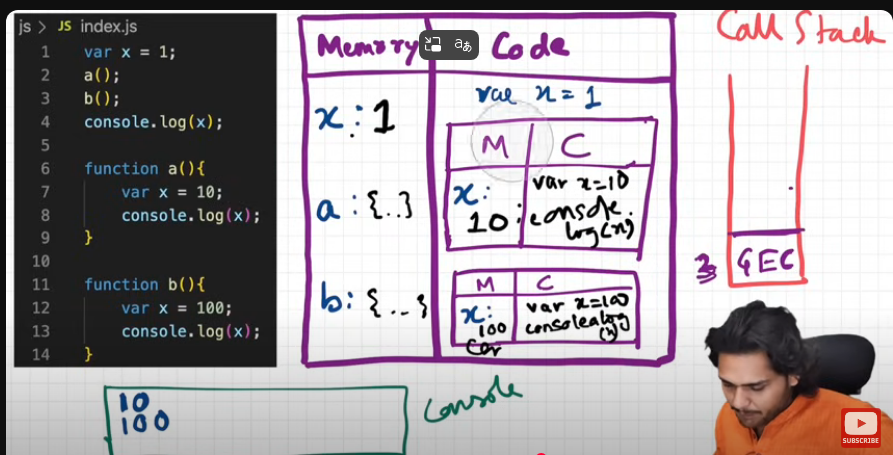 js > JS index.js
1 var x = 1;
2 a();
3 b();
4 console.log(x);
5
6 function a(){
7 var x = 10;
8 console.log(x);
9 }
10
11 function b(){
12 var x = 100;
13 console.log(x);
14 }
Memory
Code
x : 1
a : {..}
b : {...}
var x = 1
M C
x:
10
var x=10
console.
log(x)
M C
x:
100
var x=100
console.log
(x)
Call Stack
GEC
10
100
Console
SUBSCRIBE